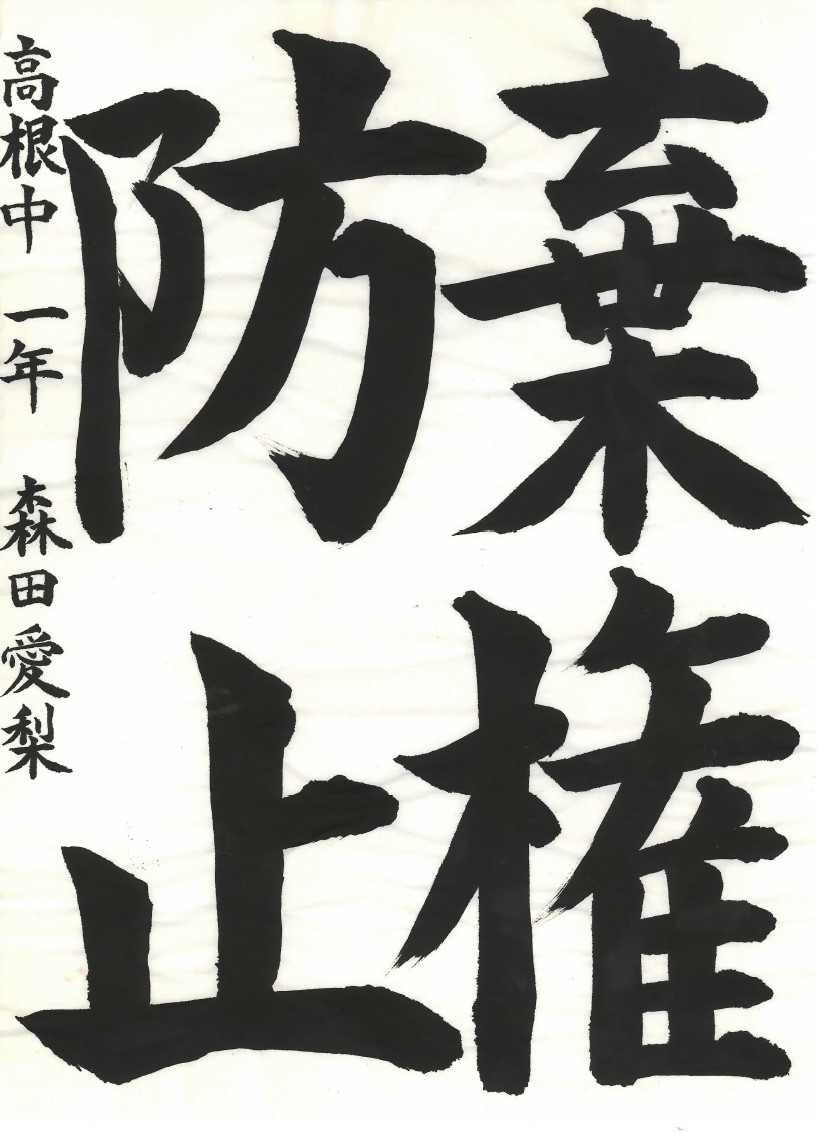 棄権
防止
高根中 一年 森田愛梨